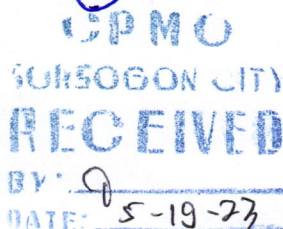 CPMO
SORSOGON CITY
RECEIVED
BY:
DATE: 5-19-23